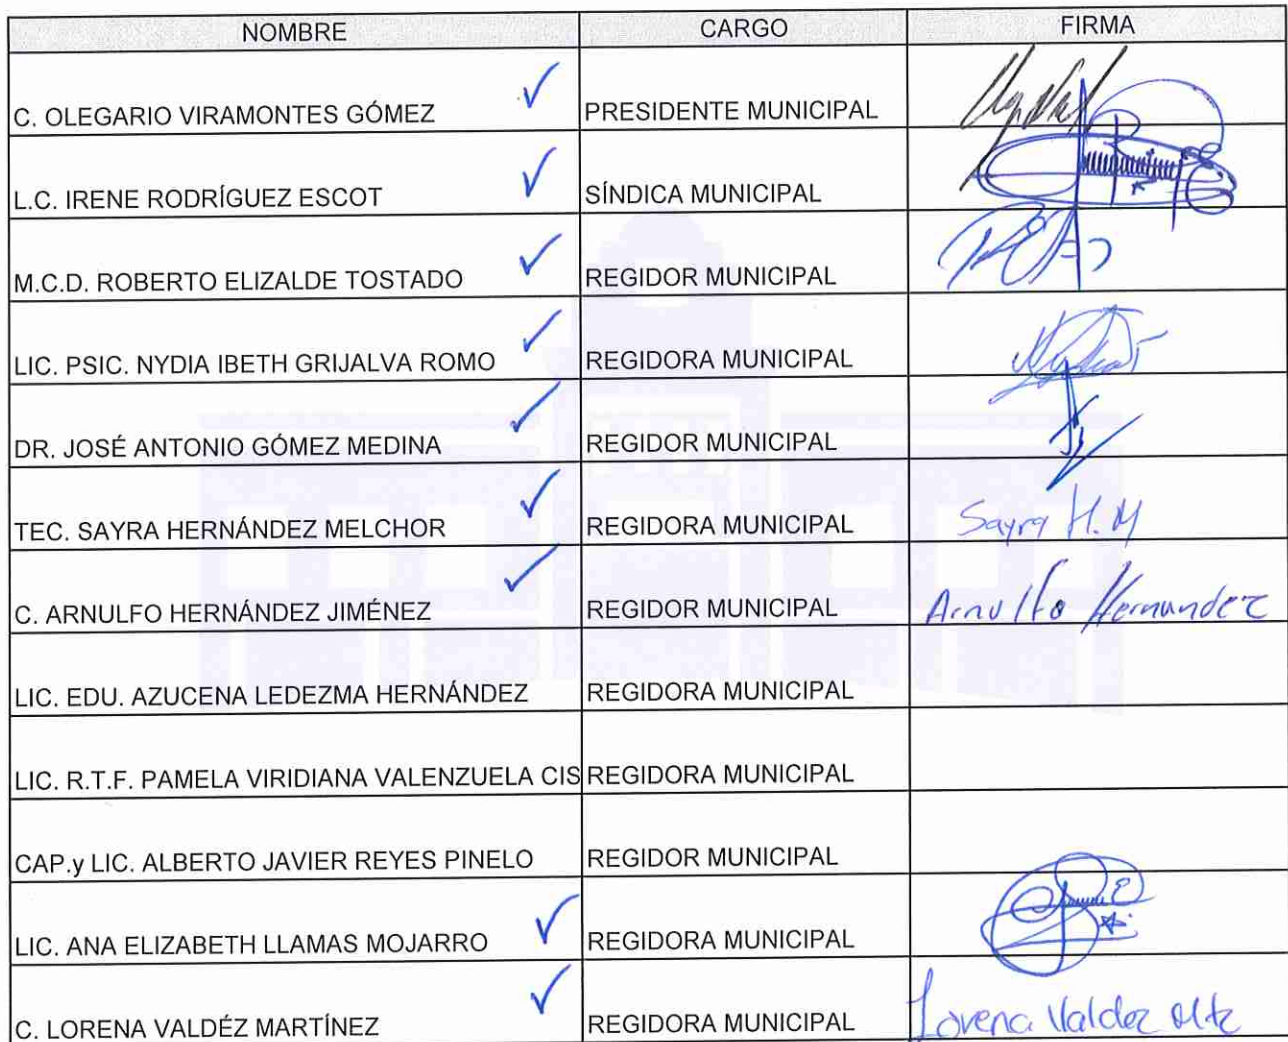 NOMBRE CARGO FIRMA
C. OLEGARIO VIRAMONTES GÓMEZ PRESIDENTE MUNICIPAL
L.C. IRENE RODRÍGUEZ ESCOT SÍNDICA MUNICIPAL
M.C.D. ROBERTO ELIZALDE TOSTADO REGIDOR MUNICIPAL
LIC. PSIC. NYDIA IBETH GRIJALVA ROMO REGIDORA MUNICIPAL
DR. JOSÉ ANTONIO GÓMEZ MEDINA REGIDOR MUNICIPAL
TEC. SAYRA HERNÁNDEZ MELCHOR REGIDORA MUNICIPAL Sayra H. M
C. ARNULFO HERNÁNDEZ JIMÉNEZ REGIDOR MUNICIPAL Arnulfo Hernandez
LIC. EDU. AZUCENA LEDEZMA HERNÁNDEZ REGIDORA MUNICIPAL
LIC. R.T.F. PAMELA VIRIDIANA VALENZUELA CIS REGIDORA MUNICIPAL
CAP.y LIC. ALBERTO JAVIER REYES PINELO REGIDOR MUNICIPAL
LIC. ANA ELIZABETH LLAMAS MOJARRO REGIDORA MUNICIPAL
C. LORENA VALDÉZ MARTÍNEZ REGIDORA MUNICIPAL Lorena Valdez Mtz